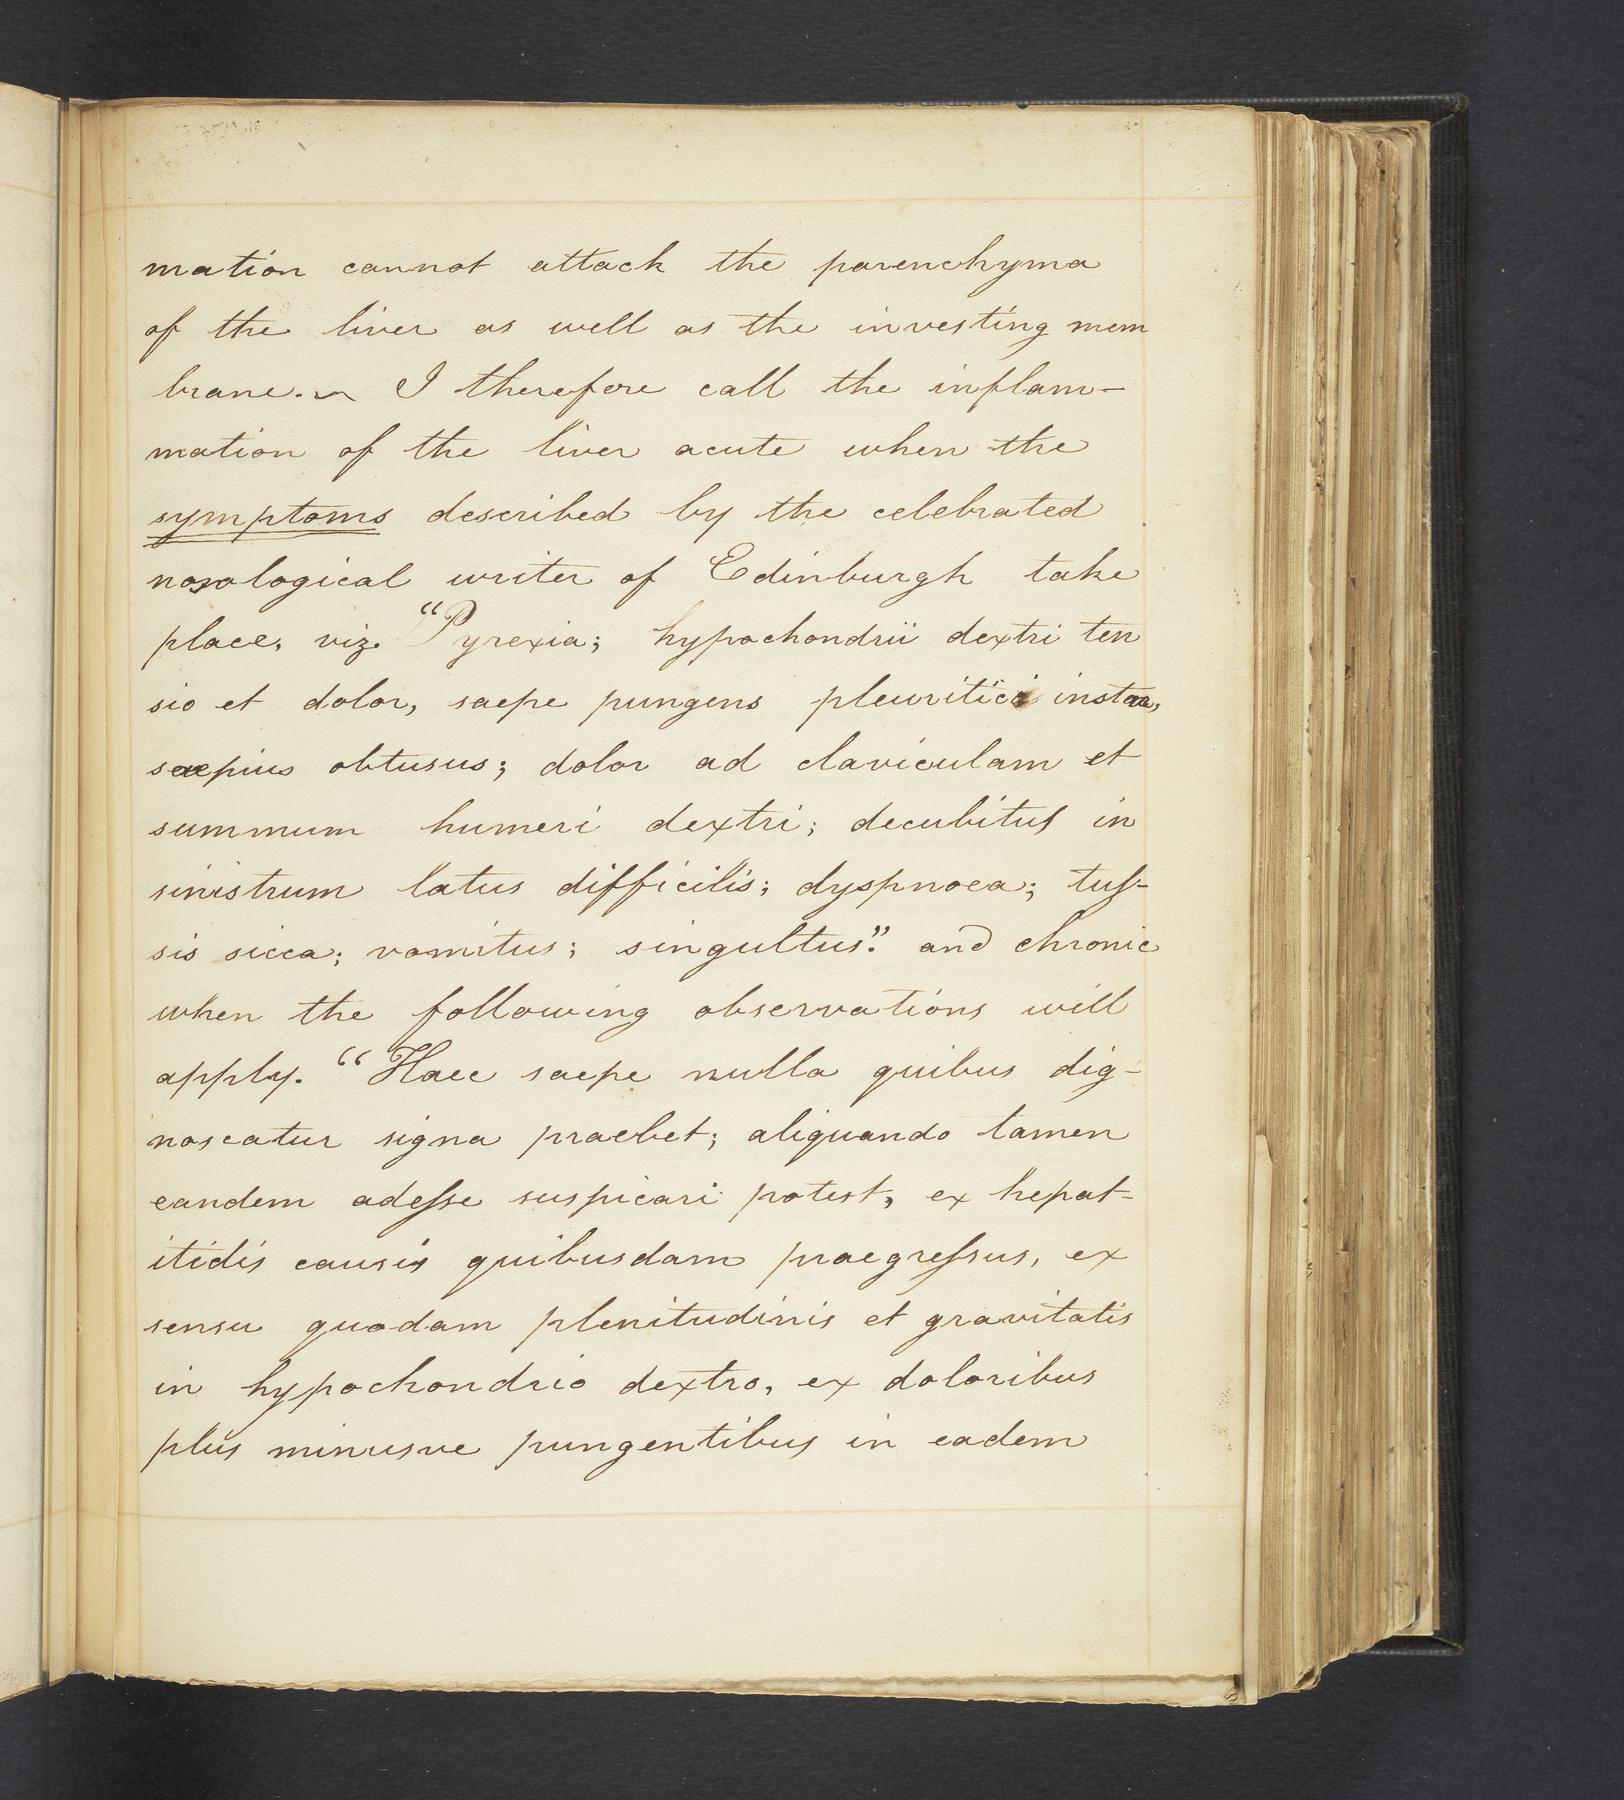 mation cannot attack the parenchyma
of the liver as well as the investing mem
brane. I therefore call the inflam-
mation of the liver acute when the
symptoms described by the celebrated
nosological writer of Edinburgh take
place, viz. "Pyrexia; hypochondrii dextri ten
sio et dolor, saepe pungens pleuritici instar,
saepius obtusus; dolor ad claviculam et
summum humeri dextri; decubitus in
sinistrum latus difficilis; dyspnoea; tuſ-
sis sicca; vomitus; singultus." and chronic
when the following observations will
apply. "Haec saepe nulla quibus dig-
noscatur signa praebet; aliquando tamen
eandem adeſse suspicari potest, ex hepat-
itidis causis quibusdam praegreſsus, ex
sensu quodam plenitudinis et gravitatis
in hypochondrio dextro, ex doloribus
plus minusve pungentibus in eadem